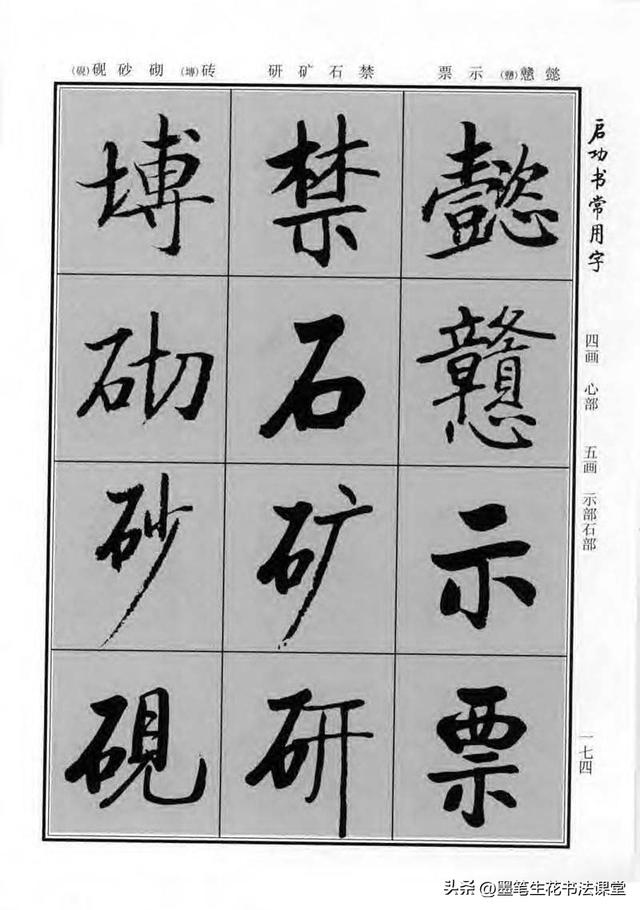 懿戆(戇)示票 禁石矿研 砖(塼)砌砂砚(硯)
启功书常用字
四画 心部 五画 示部石部
一七四
懿戇示票
禁石矿研
塼砌砂硯
头条 @墨笔生花书法课堂